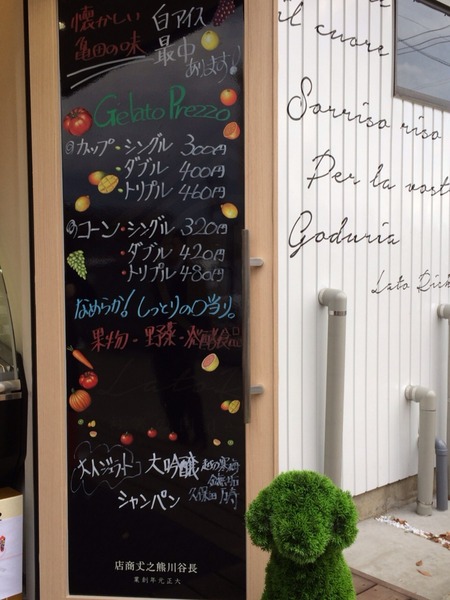 懐かしい 白アイス
亀田の味 最中
あります!
Gelato Prezzo
◎カップ・シングル 300円
・ダブル 400円
・トリプル 460円
◎コーン・シングル 320円
・ダブル 420円
・トリプル 480円
なめらか!しっとりの口当り。
果物・野菜・
大人ジェラート 大吟醸 越の寒梅
久保田
シャンパン
店商丈之熊川谷長
業創年元正大
il cuore
Sorriso riso
Per la vost
Goduria
Lato Rich